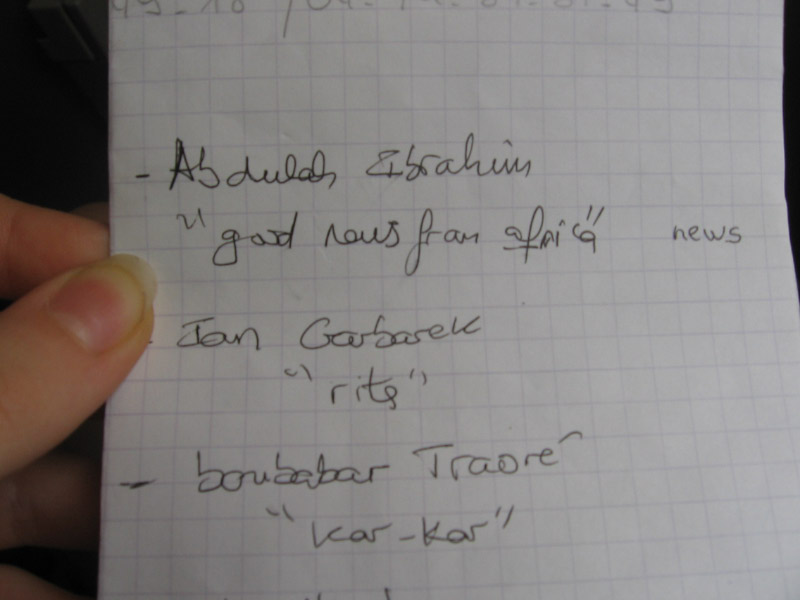 - Abdulah Ibrahim
"good news from africa" news
- Jan Garbarek
"rites"
- boubabar Traoré
"kar-kar"